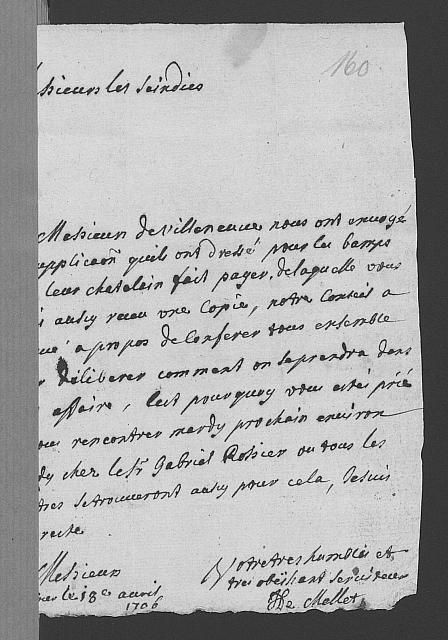 160
ssieurs les Seindics
Messieurs de Villeneuve nous ont envoyé
upplicaõn quils ont dressé pour les bamps
leur chatelain fait payer, de laquelle vous
aussy receu une Copie, notre Conseil a
vé a propos de Conferer tous ensemble
r déliberer comment on se prendra dans
affaire, Cest pourquoy vous estes prié
ous rencontrer mardy prochain environ
dy chez le Sr Gabriel Rossier ou tous les
tres se trouveront aussy pour cela, Je suis
reste
Messieurs
Votre tres humble et
le 18e avril
tres obeissant Serviteur
1706
Mellet